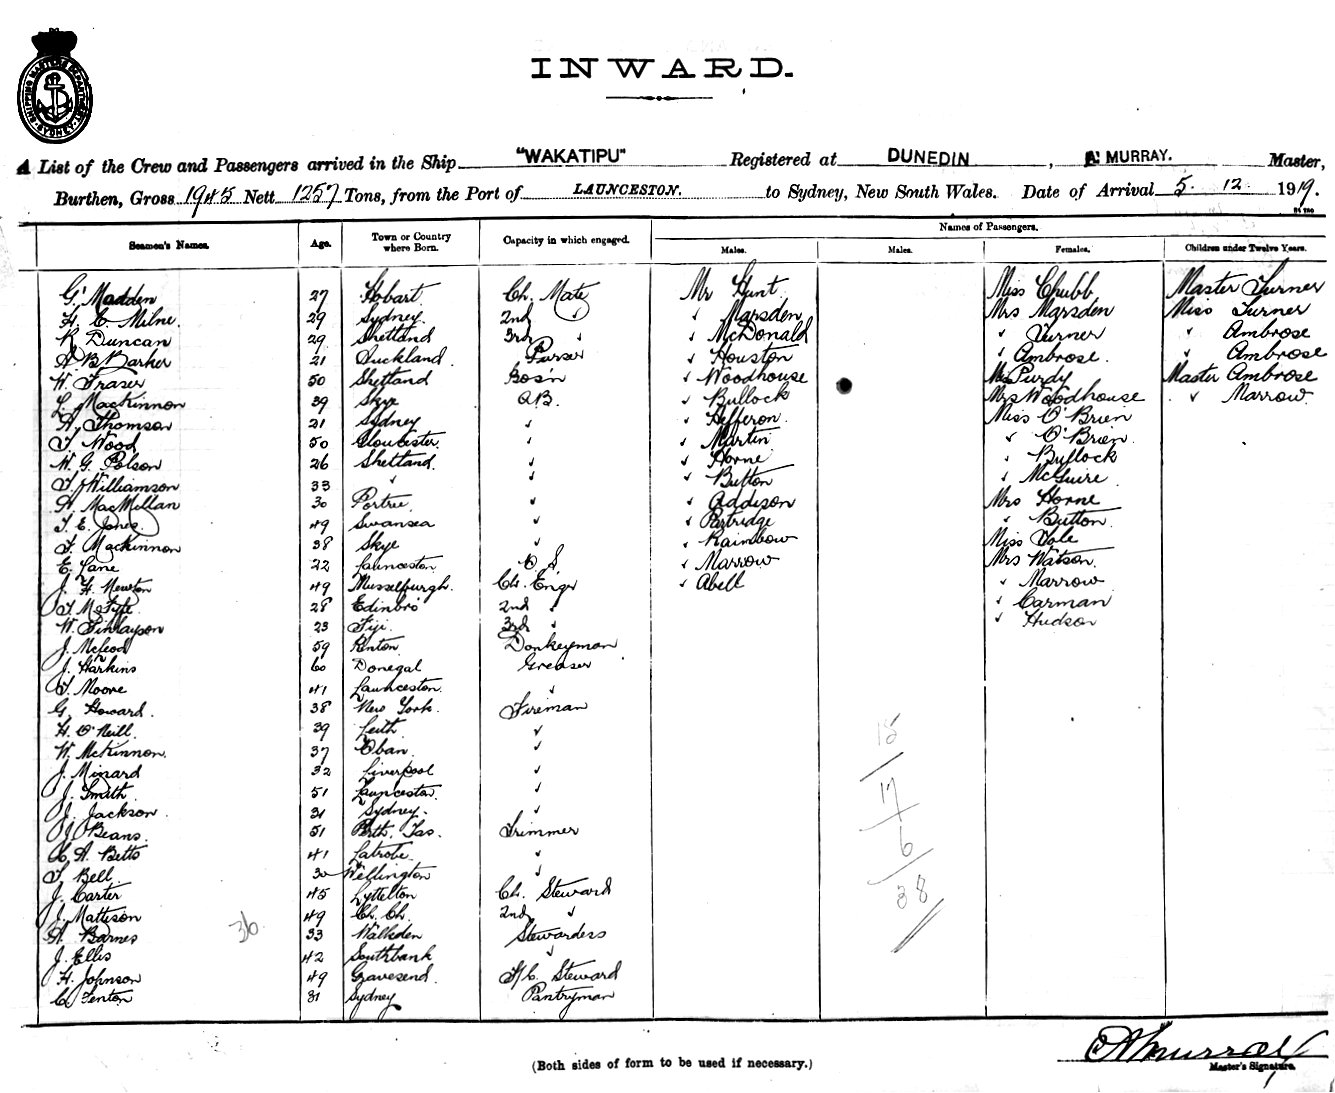 SHIPPING MASTERS DEPARTMENT SYDNEY
INWARD.
A List of the Crew and Passengers arrived in the Ship "WAKATIPU" Registered at DUNEDIN, A. MURRAY. Master,
Burthen, Gross 1945 Nett 1257 Tons, from the Port of LAUNCESTON. to Sydney, New South Wales. Date of Arrival 5. 12. 1919.
Names of Passengers.
Seamen's Names. Age. Town or Country where Born. Capacity in which engaged. Males. Males. Females. Children under Twelve Years.
G. Madden 27 Hobart Ch. Mate Mr Hunt Miss Chubb Master Turner
H. C. Milne. 29 Sydney. 2nd " " Marsden Mrs Marsden Miss Turner
R Duncan 29 Shetland 3rd " " McDonald " Turner " Ambrose
A B Barker 21 Auckland. Purser " Houston " Ambrose. " Ambrose
W. Fraser 50 Shetland Bos'n " Woodhouse Miss Purdy Master Ambrose
L. MacKinnon 39 Skye A.B. " Bullock Mrs Woodhouse " Marrow.
A. Thomson 21 Sydney " " Hefferon. Miss O'Brien
T. Wood 50 Gloucester. " " Martin " O'Brien.
W. G. Polson 26 Shetland. " " Horne " Bullock
T. Williamson 33 " " " Button " McGuire.
A. MacMillan 30 Portree. " " Addison Mrs Horne
T. E. Jones. 49 Swansea " " Partridge " Button.
T. MacKinnon 38 Skye " " Rainbow Miss Vole
E. Lane 22 Launceston O.S. " Marrow Mrs Watson.
J. H. Newton 49 Musselburgh. Ch. Engr " Abell " Marrow
T. McFyfe. 28 Edinbro' 2nd " " Carman
W. Finlayson 23 Fiji. 3rd " " Hudson
J. McLeod 59 Renton. Donkeyman
J. Harkins 60 Donegal Greaser
T. Moore 41 Launceston. "
G. Howard. 38 New York. Fireman
H. O'Neill. 39 Leith. "
W. McKinnon. 37 Oban. "
J. Minard 32 Liverpool "
J. Smith. 51 Launceston. "
J. Jackson. 31 Sydney. "
J. Beans. 51 Perth. Tas. Trimmer
C. A. Betts 41 Latrobe. "
T. Bell. 30 Wellington "
J. Carter 45 Lyttelton Ch. Steward
J. Mattison 49 Ch. Ch. 2nd "
A. Barnes 33 Walkden Stewardess
J. Ellis 42 Southbank "
H. Johnson 49 Gravesend. F/C. Steward
C. Fenton 31 Sydney Pantryman
36
15
17
6
38
(Both sides of form to be used if necessary.)
A Murray
Master's Signature.